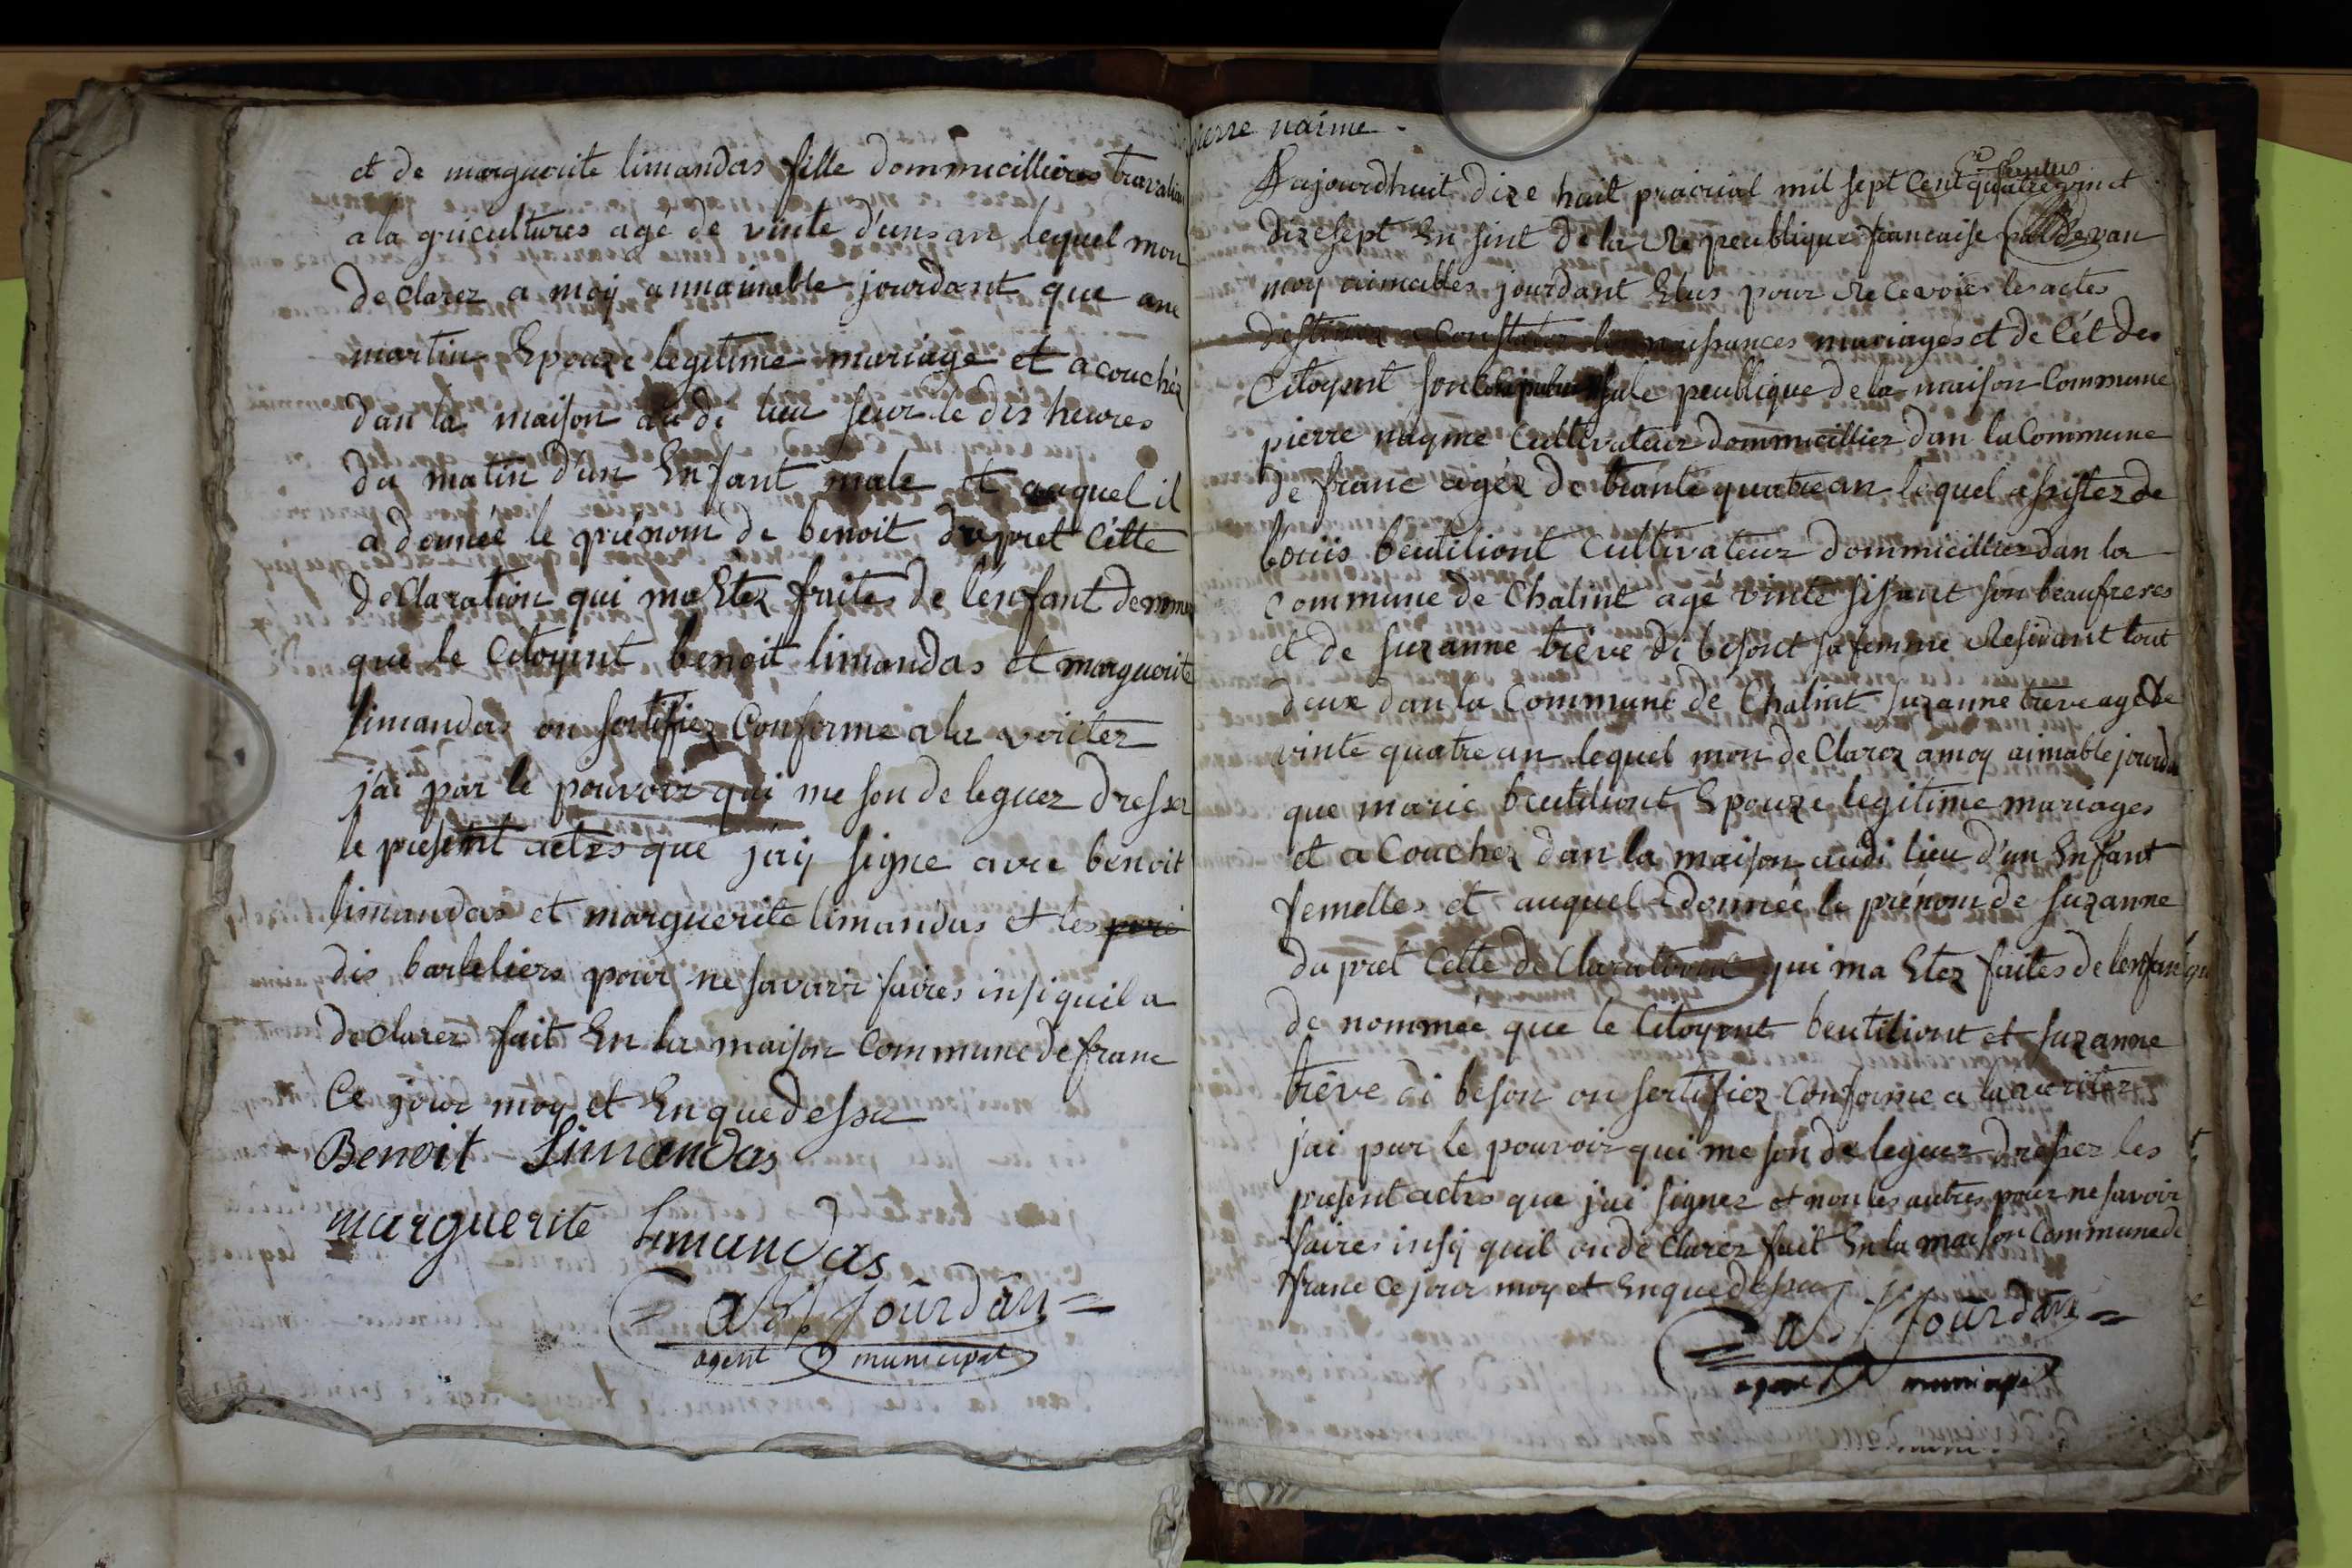 et de marguerite limandas fille dommicillieres travalian
a la gricultures agé de vinte d'uns an lequel mon
de clarez a moy annaimable jourdant que ane
martin Epouze legitime mariage et acouchéz
dan la maison au di lieu seur le dis heures
du matin d'un Enfant male et auquel il
a donneé le prénom de benoit dapret cette
de Claration qui ma Etez faites de l'énfant denomé
que le Citoyent benoit limandas et marguerite
limandas on sertifiez Conforme a la veritez
j'ai par le pouvoir qui me son de leguez dressez
le present actes que j'ay signe avec benoit
limandas et marguerite limandas et les pere
dis barleliers pour ne savoir faires insi quil a
declarez fait En la maison Commune de franc
Ce jour moy et En que dessu
Benoit Limandas
marguerite Limandas
a jourdan
agent municipal
pierre naime
Aajourdhuit dize huit prairial mil sept Cent quatre vin et
dizesept En sint de la Re peublique francaise par devan
moy aimables jourdant Elus pour Recevoir les actes
destinez a Constater les naissances mariages et de l'ét des
Citoyent son sale peublique de la maison Commune
pierre nayme Cultivateur dommicilliez dan la Commune
de franc agéz de trante quatre an lequel assistez de
louis beutiliont Cultivateur dommicilliez dan la
Commune de Chalint agé vinte sis ant son beaufreres
et de suzanne trêve di besont sa femme Residant tout
deux dan la Commune de Chalint suzanne treve agé de
vinte quatre an lequel mon de Clarez a moy aimable jourdan
que marie beutiliont Epouze legitime mariages
et a Couchez dan la maison audi lieu d'un Enfant
femelles et auquel a donneé le prénom de suzanne
da pret Cette de Clarationt qui ma Etez faites de l'enfan qu
de nommée que le Citoyent beutiliont et suzanne
trêve di beson on sertifiez Conforme a la veritez
j'ai par le pouvoir qui me son de leguez dressez les
present actes que j'ai signez et non les autres pour ne savoir
faires insy quil on de Clarez fait En la maison Commune de
franc Ce jour moy et En que dessu
a jourdan
agent municipal